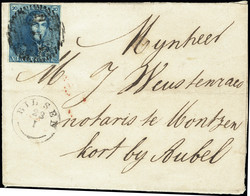 Mynheer
M. J Weustenraed
notaris te Montzen
kort by Aubel
BILSEN